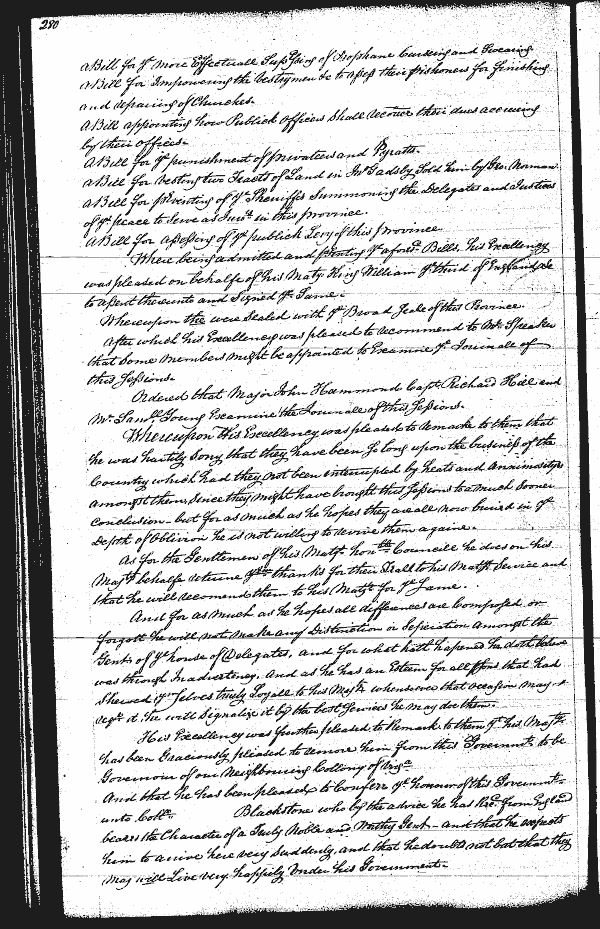 280
A Bill for ye more Effectuall Supp'ssing of Prophane Curseing and Swearing
A Bill for Impowering the Vestrymen &c to assess their Prishoners for finishing
and repairing of Churches.
A Bill appointing how Publick officers shall receive their dues accruing
by their offices.
A Bill for ye punishment of Privateers and Pyratts.
A Bill for Vesting two Feasts of Land in Jno Gadsby Sold him by Geo. Norman.
A Bill for p'venting of ye Sheriffs Summoning the Delegates and Justices
of ye peace to serve as Jurrs in this Province.
A Bill for assessing of ye publick Levy of this Province
Which being admitted and ye aforsd Bills, his Excellency
was pleased on behalfe of his Maty King William ye third of England &c
to assent thereunto and Signed ye Same.
Whereupon the were Sealed with ye Broad Seale of this Province.
After which his Excellency was pleased to recommend to Mr Speaker
that some members might be appointed to Examine ye Journall of
this Sessions.
Ordered that Major John Hammond Capt. Richard Hill and
Mr Samll Young Examine the Journall of this Sessions.
Whereupon His Excellency was pleased to remarke to them that
he was hartily sorry that they have been so long upon the business of the
Country which had they not been interrupted by heats and Annimositys
amongst them, since they might have brought this Sessions to a much sooner
conclusion - but for as much as he hopes they are all now buried in ye
Depth of Oblivion he is not willing to revive them againe.
As for the Gentlemen of his Matys honble Councill he does on his
Majtys behalfe returne thanks for their Zeall to his Matys Service and
that he will recomend them to his Maty for ye Same.
And for as much as he hopes all differences are Composed or
forgott he will not make any Distinction or Seperation Amongst the
Gents of ye house of Delegates, and for what hath hapened he doth beleive
was through Inadvertency. And as he has an Esteem for all that had
Shewed ymselves truly Loyall to his Majty whensoever that occasion may
reqr it, he will Signalize it by the best Services he may doe them.
His Excellency was further pleased to Remark to them yt his Majty
has been Graciously pleased to remove him from this Governmt, to be
Governour of our Neighbouring Collony of Virga
And that he has been pleased to Conferr ye honour of this Governmt
unto Collo. Blackstone who by the advice he has Recd from England
beares the Character of a Truly Noble and Worthy Gent - and that he expects
him to arrive here very Suddenly, and that he doubts not but that they
may will Live very happily Under his Government.